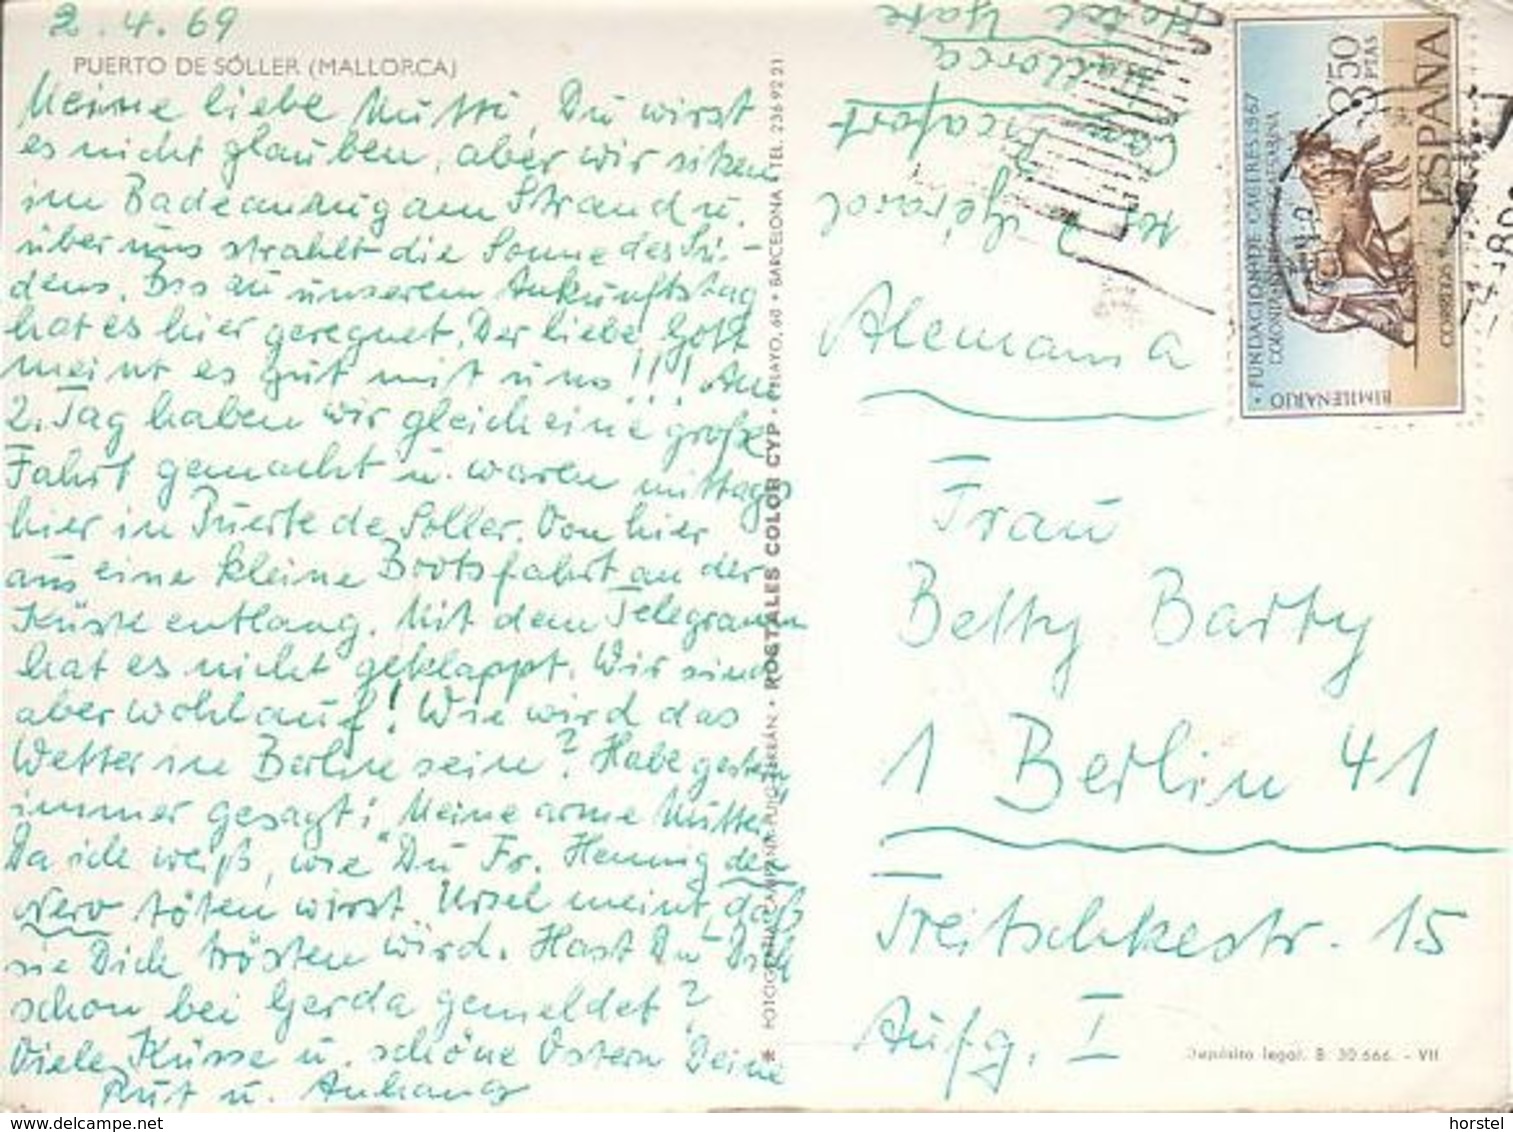 2.4.69
PUERTO DE SÓLLER (MALLORCA)
Meine liebe Mutti, Du wirst
es nicht glauben, aber wir sitzen
im Badeanzug am Strand u.
über uns strahlt die Sonne des Sü-
dens. Bis zu unserem Ankunftstag
hat es hier geregnet. Der liebe Gott
meint es gut mit uns!!! Am
2. Tag haben wir gleich eine große
Fahrt gemacht u. waren mittags
hier in Puerte de Soller. Von hier
aus eine kleine Bootsfahrt an der
Küste entlang. Mit dem Telegramm
hat es nicht geklappt. Wir sind
aber wohlauf! Wie wird das
Wetter in Berlin sein? Habe gestern
immer gesagt: "Meine arme Mutter"
Da ich weiß, wie Du Fr. Hennig den
Nerv töten wirst. Ursel meint, daß
sie Dich trösten wird. Hast Du Dich
schon bei Gerda gemeldet?
Viele Küsse u. schöne Ostern Deine
Rut u. Anhang
✻ FOTOGRAFIA CAMPAÑA-PUIG-FERRÁN • POSTALES COLOR CYP • PELAYO, 60 • BARCELONA • TEL. 2369221
Hotel
Mallorca
Cas
Alemania
Frau
Betty Barty
1 Berlin 41
Treitschkestr. 15
Aufg. I
Depósito legal. B. 30.666. - VII
BIMILENARIO
• FUNDACION DE CACERES 1967
3'50 PTAS
CORREOS
ESPAÑA
www.delcampe.net
horstel